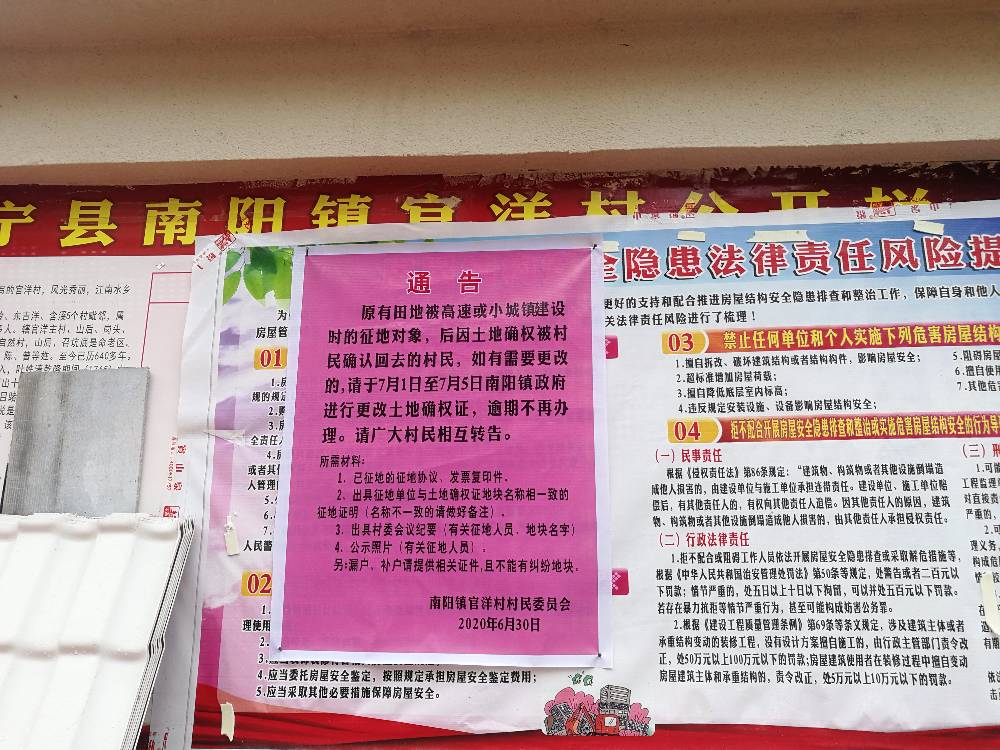 宁县南阳镇官洋村公开栏
全隐患法律责任风险提
更好的支持和配合推进房屋结构安全隐患排查和整治工作，保障自身和他人
关法律责任风险进行了梳理！
通 告
原有田地被高速或小城镇建设
时的征地对象，后因土地确权被村
民确认回去的村民，如有需要更改
的，请于7月1日至7月5日南阳镇政府
进行更改土地确权证，逾期不再办
理。请广大村民相互转告。
所需材料：
1、已征地的征地协议、发票复印件。
2、出具征地单位与土地确权证地块名称相一致的
征地证明（名称不一致的请做好备注）。
3、出具村委会议纪要（有关征地人员、地块名字）
4、公示照片（有关征地人员）。
另：漏户、补户请提供相关证件，且不能有纠纷地块。
南阳镇官洋村村民委员会
2020年6月30日
01
02
4.应当委托房屋安全鉴定，按照规定承担房屋安全鉴定费用；
5.应当采取其他必要措施保障房屋安全。
03 禁止任何单位和个人实施下列危害房屋结构
1.擅自拆改、破坏建筑结构或者结构构件，影响房屋安全；
2.超标准增加房屋荷载；
3.擅自降低底层室内标高；
4.违反规定安装设施、设备影响房屋结构安全；
5.阻碍房屋
6.擅自使用
7.其他危害
04 拒不配合开展房屋安全隐患排查和整治或实施危害房屋结构安全的行为导
(一) 民事责任
根据《侵权责任法》第86条规定：“建筑物、构筑物或者其他设施倒塌造
成他人损害的，由建设单位与施工单位承担连带责任。建设单位、施工单位
赔偿后，有其他责任人的，有权向其他责任人追偿。因其他责任人的原因，建筑
物、构筑物或者其他设施倒塌造成他人损害的，由其他责任人承担侵权责任。
(二) 行政法律责任
1.拒不配合或阻碍工作人员依法开展房屋安全隐患排查或采取解危措施等，
根据《中华人民共和国治安管理处罚法》第50条等规定，处警告或者二百元以
下罚款；情节严重的，处五日以上十日以下拘留，可以并处五百元以下罚款。
若存在暴力抗拒等情节严重行为，甚至可能构成妨害公务罪。
2.根据《建设工程质量管理条例》第69条等条文规定，涉及建筑主体或者
承重结构变动的装修工程，没有设计方案擅自施工的，由行政主管部门责令改
正，处50万元以上100万元以下的罚款；房屋建筑使用者在装修过程中擅自变动
房屋建筑主体和承重结构的，责令改正，处5万元以上10万元以下的罚款。